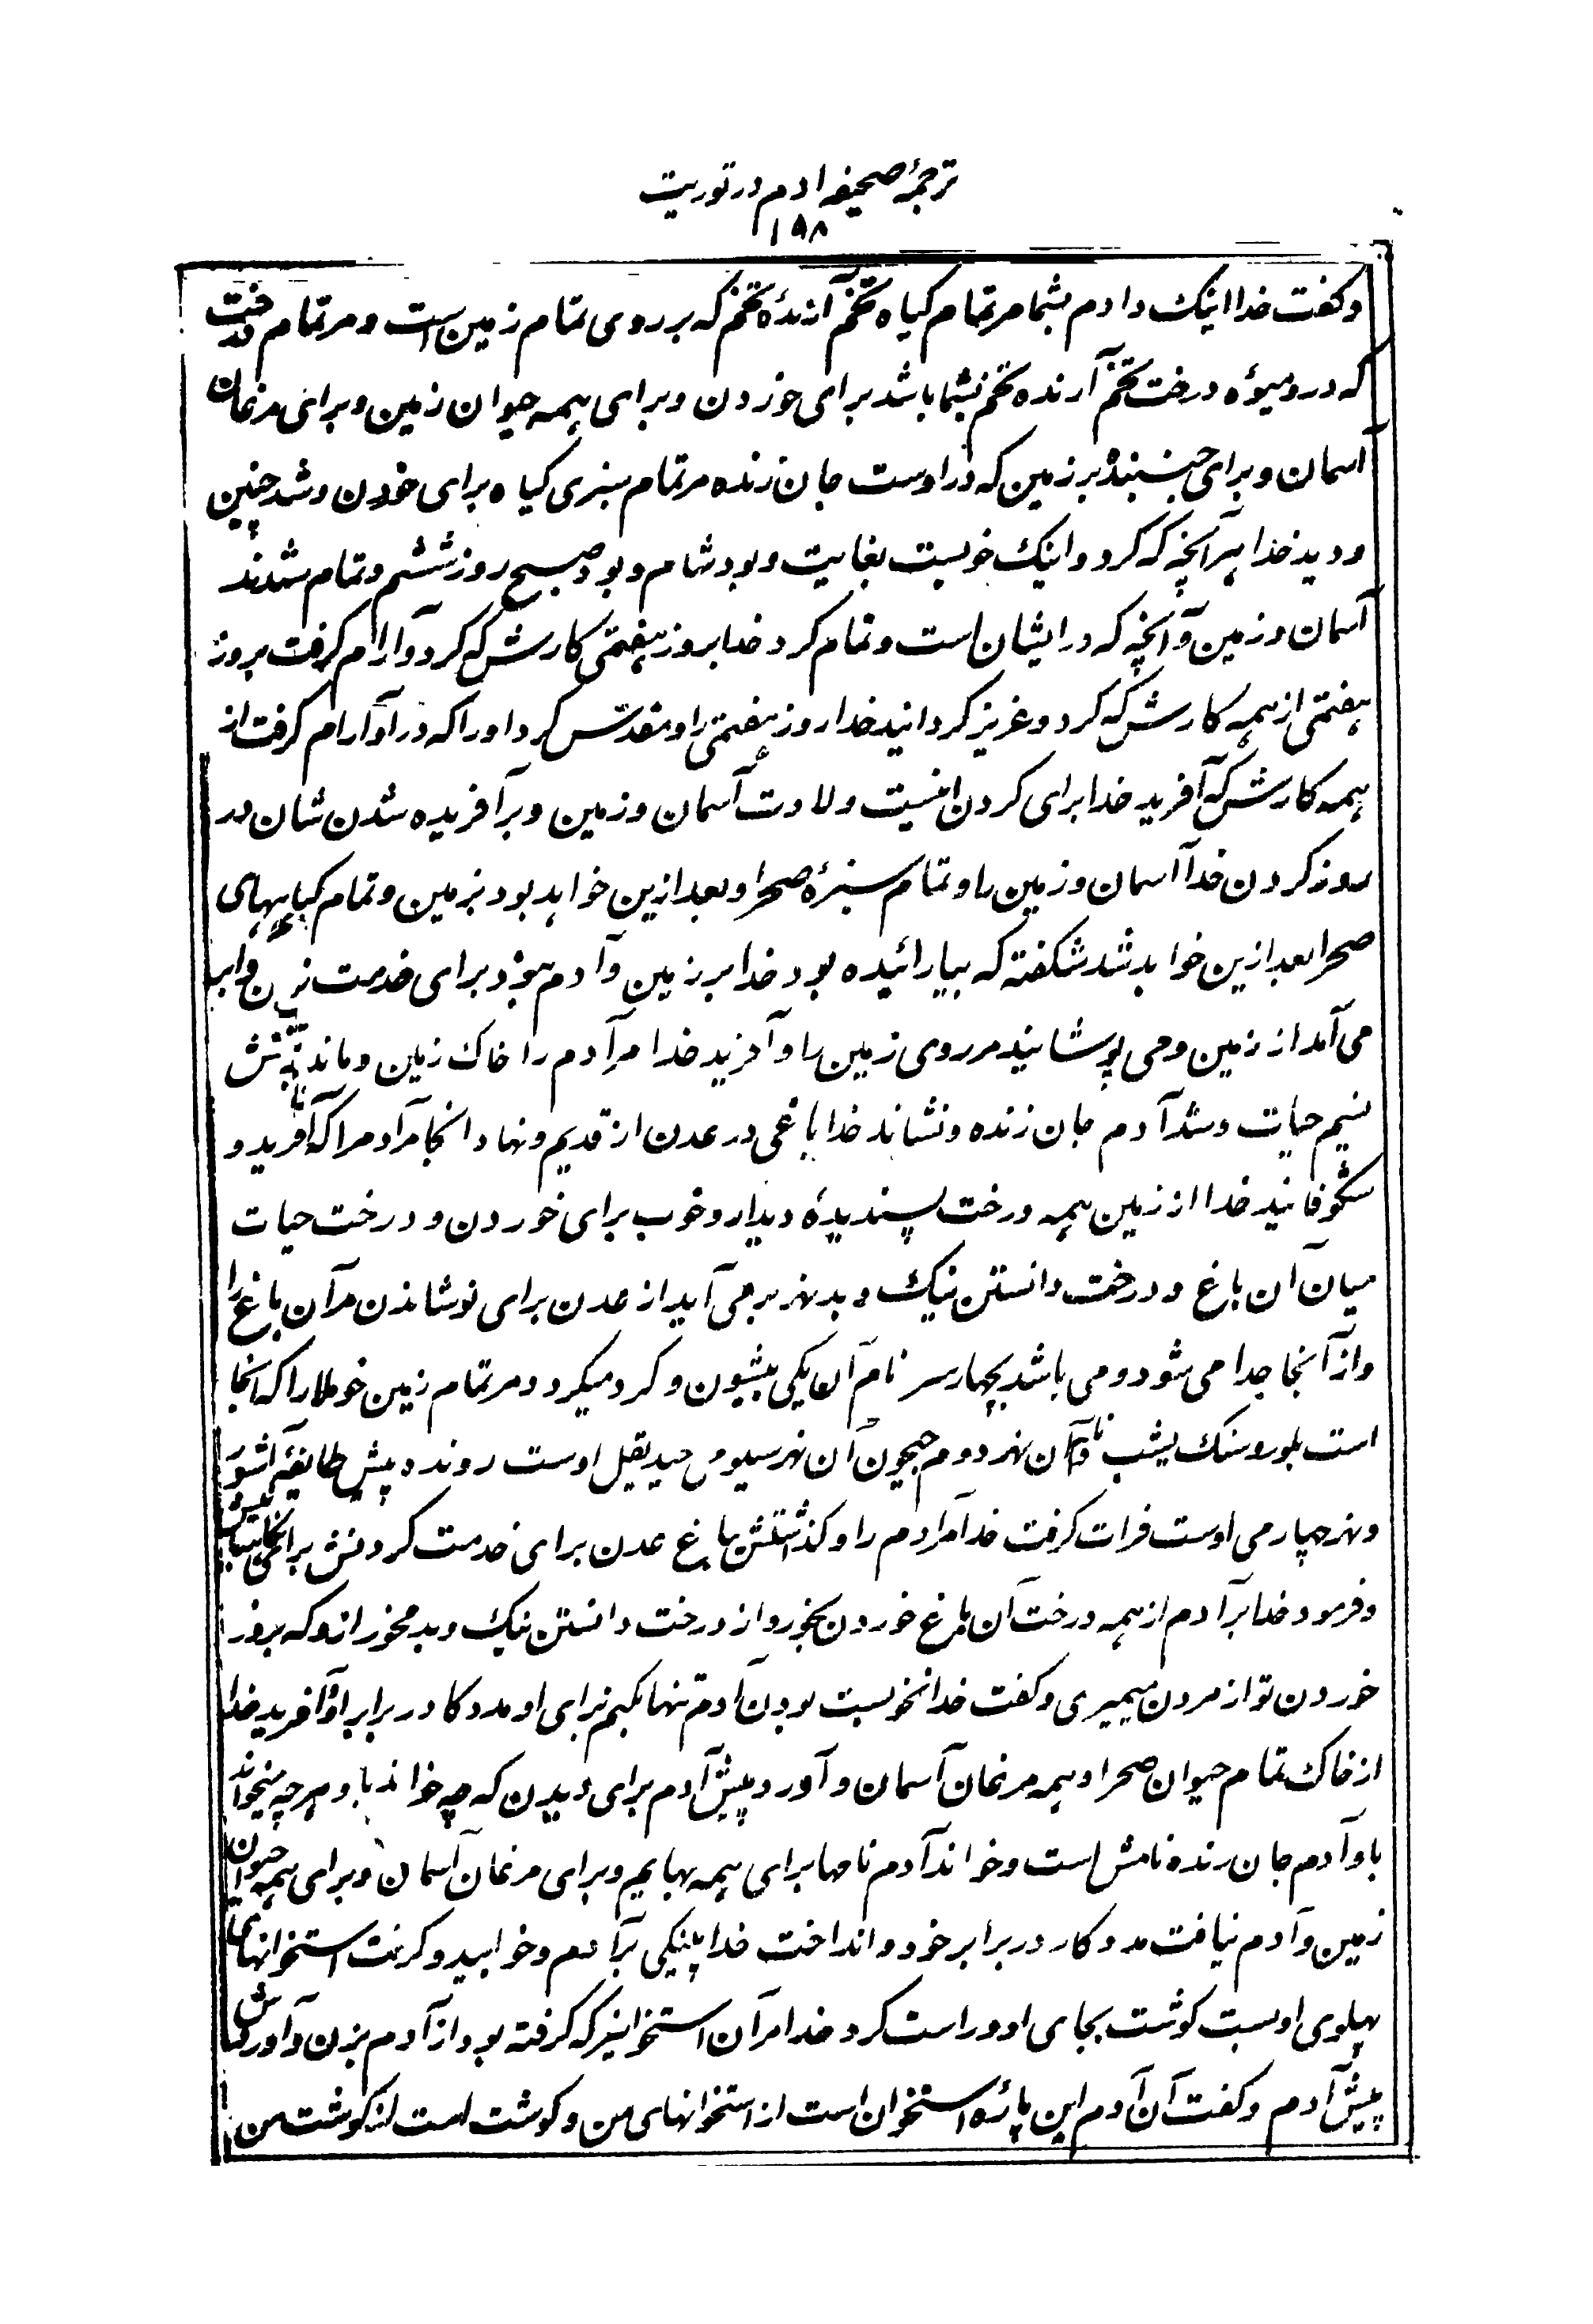 ترجمهٔ صحیفه ادم در توریت
۱۹۸
وکفت خدا اینک دادم بشما مر تمام کیاه تخم آرندهٔ تخم که بر روی تمام زمین است و مر تمام درخت
که درو میؤه درخت تخم آرنده تخم بشما باشد برای خوردن وبرای همه حیوان زمین وبرای مرغان
آسمان وبرای جنبندٔ بر زمین که در اوست جان زنده مر تمام سبزی کیاه برای خوردن وشد چنین
ودید خدا هرآنچه که کرد واینک خوبست بغایت وبود شام وبود صبح روز ششم وتمام شدند
آسمان وزمین وآنچه که در ایشان است وتمام کرد خدا بروز هفتمی کارش که کرد وآرام کرفت بروز
هفتمی از همه کارش که کرد وعزیز کردانید خدا روز هفتمی را ومقدّس کرد اورا که در او آرام کرفت از
همه کارش که آفرید خدا برای کردن اینست ولادت آسمان وزمین وبر آفریده شدن شان در
روز کردن خدا آسمان وزمین را وتمام سبزهٔ صحرا وبعد ازین خواهد بود بزمین وتمام کیاههای
صحرا بعد ازین خواهد شد شکفته که بیارائیده بود خدا بر زمین وآدم نبود برای خدمت وابر
می آمد از زمین ومی پوشانید مر روی زمین را وآفرید خدا مر آدم را خاک زمین وماند
نسیم حیات وشد آدم جان زنده ونشاند خدا باغی در عدن از قدیم ونهاد انجا مر آدم را که آفرید و
شکوفانید خدا از زمین همه درخت پسندیدهٔ دیدار وخوب برای خوردن ودرخت حیات
میان آن باغ ودرخت دانستن نیک وبد نهر بر می آید از عدن برای نوشاندن مر آن باغ را
واز آنجا جدا می شود ومی باشد بچهار سر نام آن یکی پیشون وکرد میکردد مر تمام زمین خوطلا را که آنجا
است بلور وسنک یشب نام آن نهر دوم جیحون آن نهر سیوم حیدیقل اوست رونده پیش طائفهٔ آشور
ونهر چهارمی اوست فرات کرفت خدا مر آدم را وکذاشتش بباغ عدن برای خدمت کردنش
وفرمود خدا بر آدم از همه درخت آن باغ خوردن بخور واز درخت دانستن نیک وبد مخور ازو که بروز
خوردن تو از مردن میمیری وکفت خدا نخوبست بودن آدم تنها بکنم برای او مددکار در برابر او وآفرید خدا
از خاک تمام حیوان صحرا وهمه مرغان آسمان وآورد پیش آدم برای دیدن که چه خواند باو هر چه میخواند
باو آدم جان زنده نامش است وخواند آدم نامها برای همه بهایم وبرای مرغان آسمان وبرای همه حیوان
زمین وآدم نیافت مددکار در برابر خود وانداخت خدا پینکی بر آدم وخوابید وکرفت استخوانهای
پهلوی او بست کوشت بجای او وراست کرد خدا مر آن استخوانیرا که کرفته بود از آدم بزن وآوردش
پیش آدم وکفت آن آدم این پارهٔ استخوان است از استخوانهای من وکوشت است از کوشت من